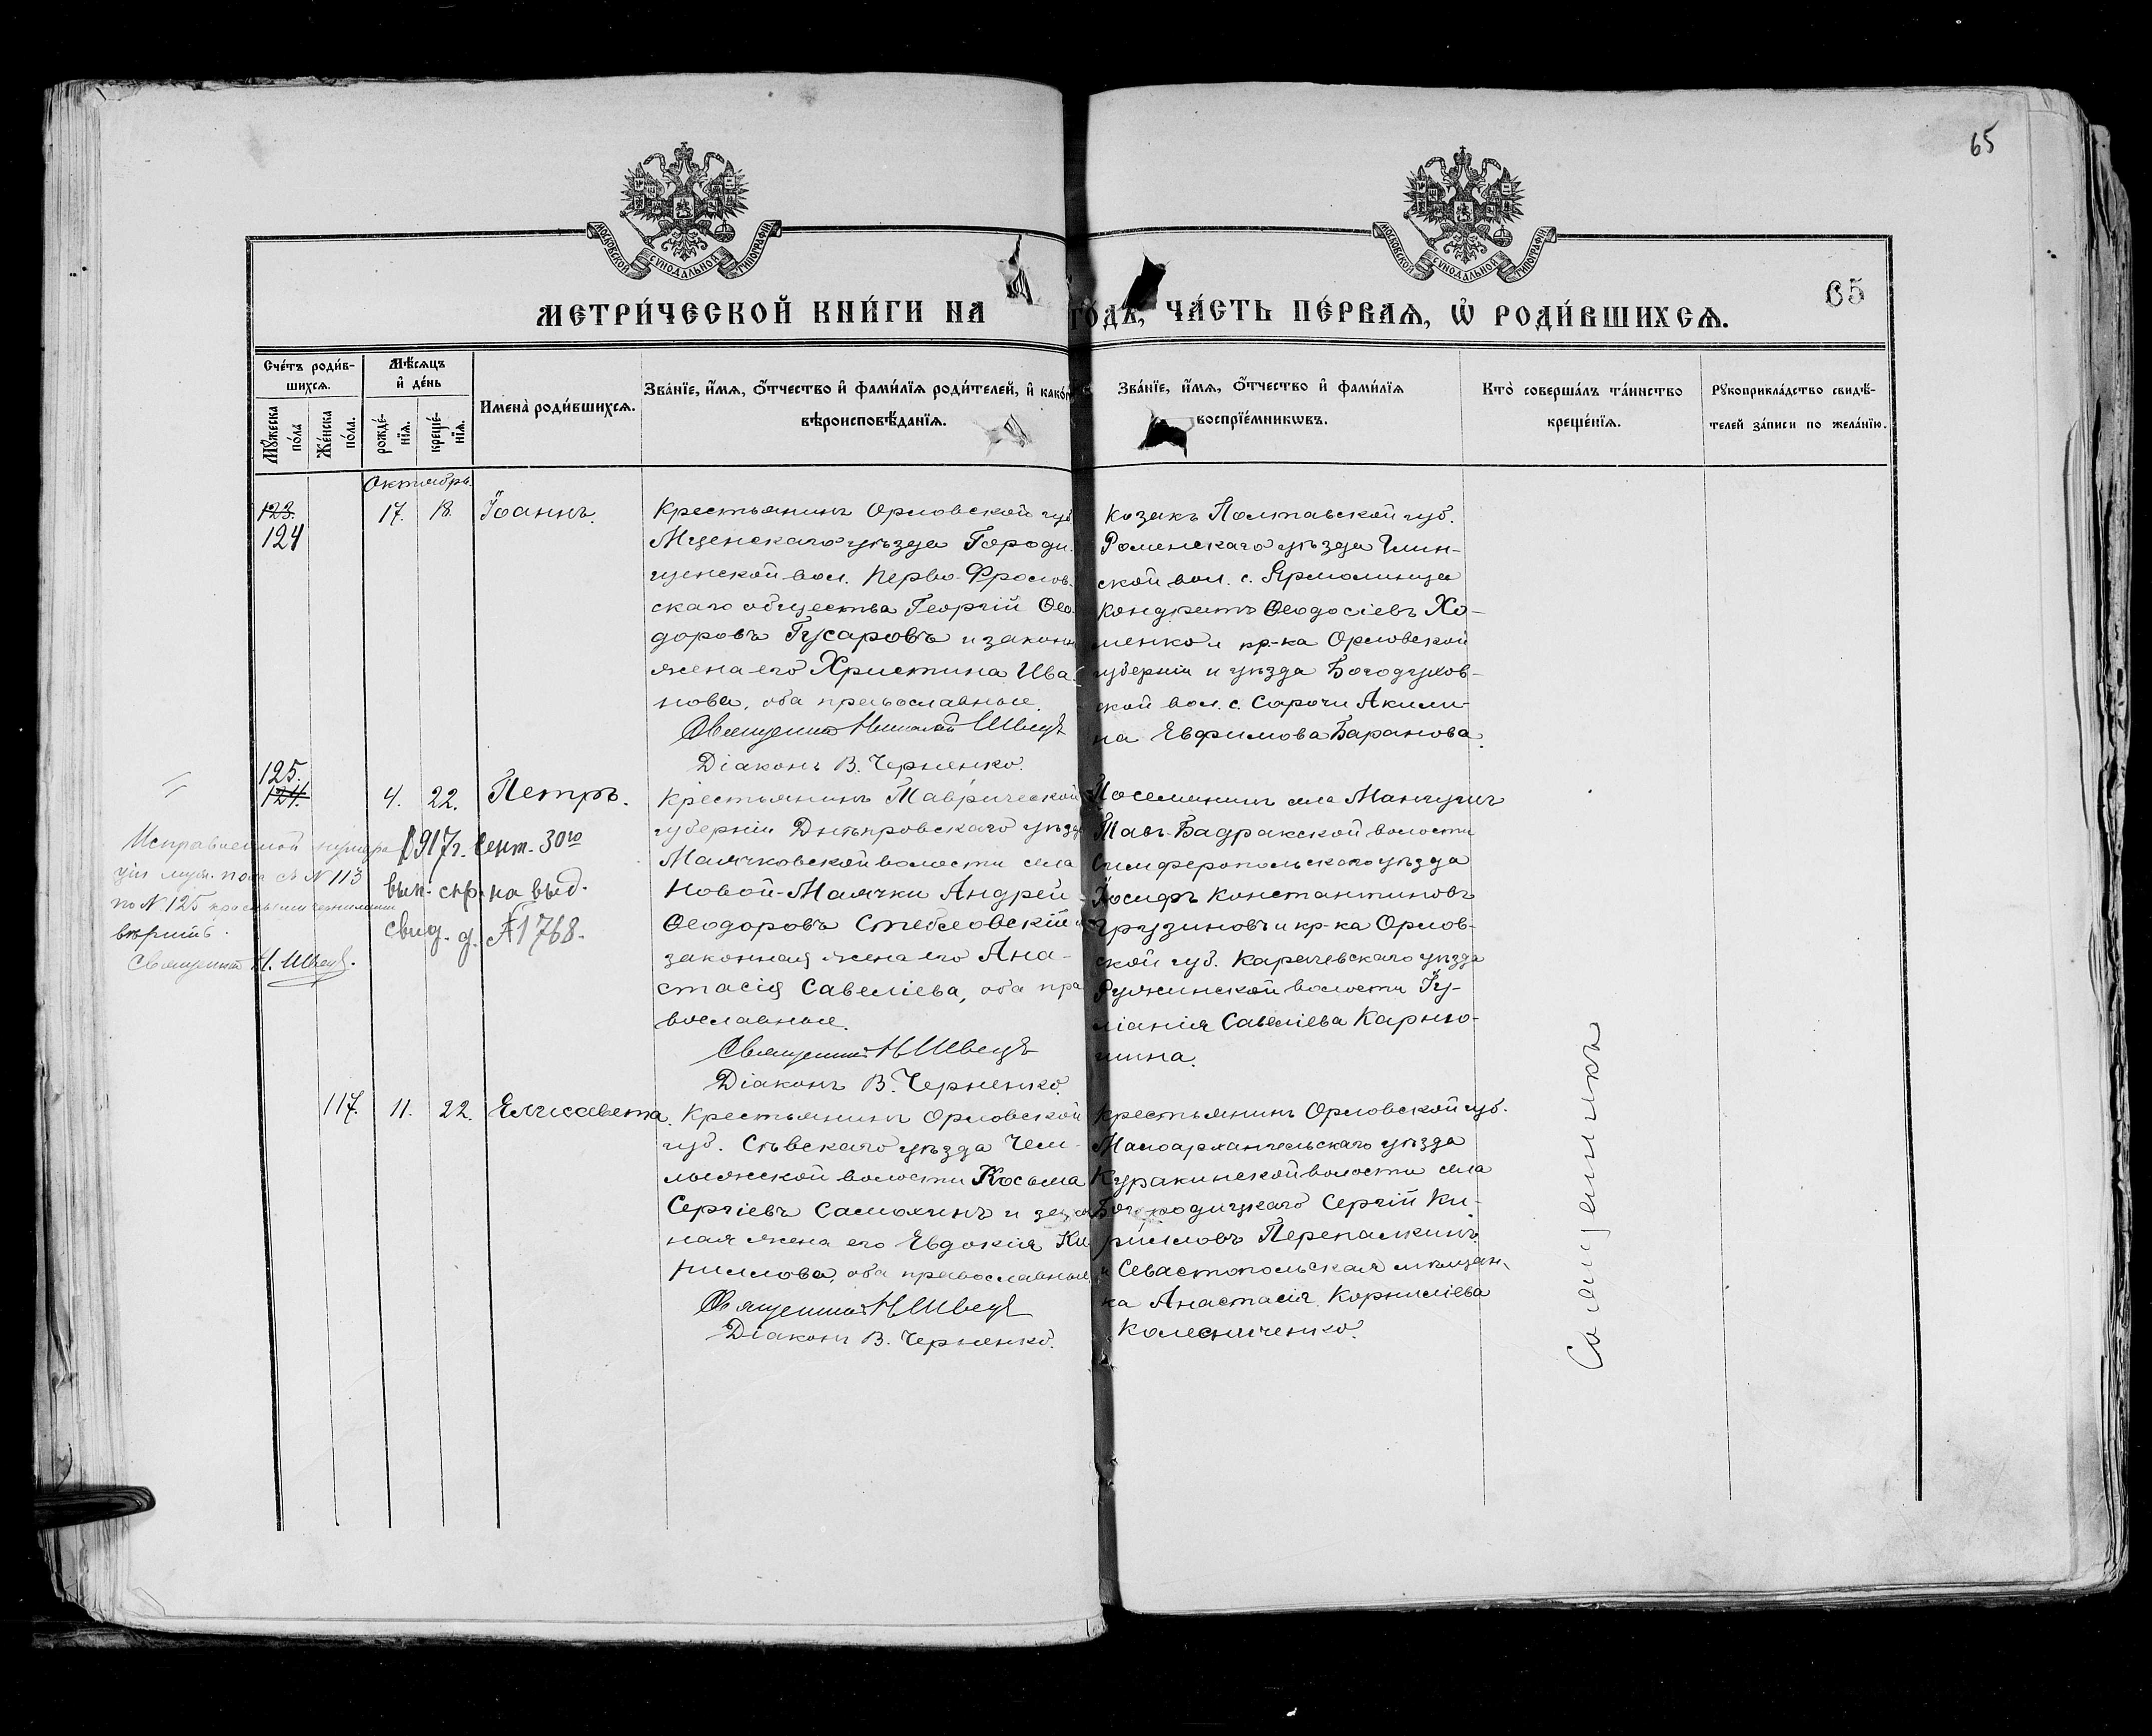 65
МОСКОВСКОЙ СѴНОДАЛЬНОЙ ТИПОГРАФІИ
МОСКОВСКОЙ СѴНОДАЛЬНОЙ ТИПОГРАФІИ
МЕТРИ́ЧЕСКОЙ КНИ́ГИ НА ГО́ДЪ, ЧА́СТЬ ПЕ́РВАѦ, Ѽ РОДИ́ВШИХСѦ.
65
Сче́тъ роди́в-
шихсѧ.
Мꙋ́жеска по́ла
Же́нска по́ла.
Мѣ́сѧцъ
и҆ де́нь
рожде́-
нїѧ.
креще́-
нїѧ.
И҆мена̀ роди́вшихсѧ.
Зва́нїе, и҆́мѧ, ѻ҆́тчество и҆ фами́лїѧ роди́телей, и҆ како́гѡ
вѣроисповѣ́данїѧ.
Зва́нїе, и҆́мѧ, ѻ҆́тчество и҆ фами́лїѧ
воспрїе́мникѡвъ.
Кто̀ соверша́лъ та́инство
креще́нїѧ.
Рꙋкоприкла́дство свидѣ́-
телей за́писи по жела́нїю.
Октябрь.
123.
124
17. 18. Іоаннъ.
Крестьянинъ Орловской губ.
Мценскаго уѣзда Городи-
щенской вол. Перво-Фролов-
скаго общества Георгій Ѳео-
доровъ Гусаровъ и законн
жена его Христина Ива-
нова, оба православные.
Священникъ Николай Швецъ
Діаконъ В. Черненко.
Козакъ Полтавской губ.
Роменскаго уѣзда Глин-
ской вол. с. Ярмолинца
Кондратъ Ѳеодосіевъ Хо-
менко и кр-ка Орловской
губерніи и уѣзда Богодухов-
ской вол. с. Сорочи Акили-
на Евфимова Баранова.
125.
124.
4. 22. Петръ.
Крестьянинъ Таврической
губерніи Днѣпровскаго уѣзда
Маячковской волости села
Новой-Маячки Андрей
Ѳеодоровъ Стебловскій и
законная жена его Ана-
стасія Савеліева, оба пра
вославные.
Священникъ Н Швецъ
Діаконъ В. Черненко.
Поселянинъ села Мангушъ
Тавъ-Бадракской волости
Симферопольскаго уѣзда
Іосифъ Константиновъ
Грузиновъ и кр-ка Орлов-
ской губ. Карачевскаго уѣзда
Ружинской волости Іу-
ліанія Савеліева Карню-
шина.
Исправленной нумера
ціи муж. пола съ N 113
по N 125 красными чернилами
вѣрить.
Священникъ Н. Швецъ.
1917 г. Сент. 30го
вып. спр. на выд.
свид. д. № 1768.
117. 11. 22. Елисавета.
Крестьянинъ Орловской
губ. Сѣвскаго уѣзда Чем-
лыжской волости Косьма
Сергіевъ Самохинъ и закон
ная жена его Евдокія Ки
риллова, оба православные
Священникъ Н Швецъ
Діаконъ В. Черненко.
Крестьянинъ Орловской губ.
Малоархангельскаго уѣзда
Куракинской волости села
Богородицкаго Сергій Ки-
рилловъ Перепалкинъ
и Севастопольская мѣщан-
ка Анастасія Корниліева
Колесниченко.
Священникъ